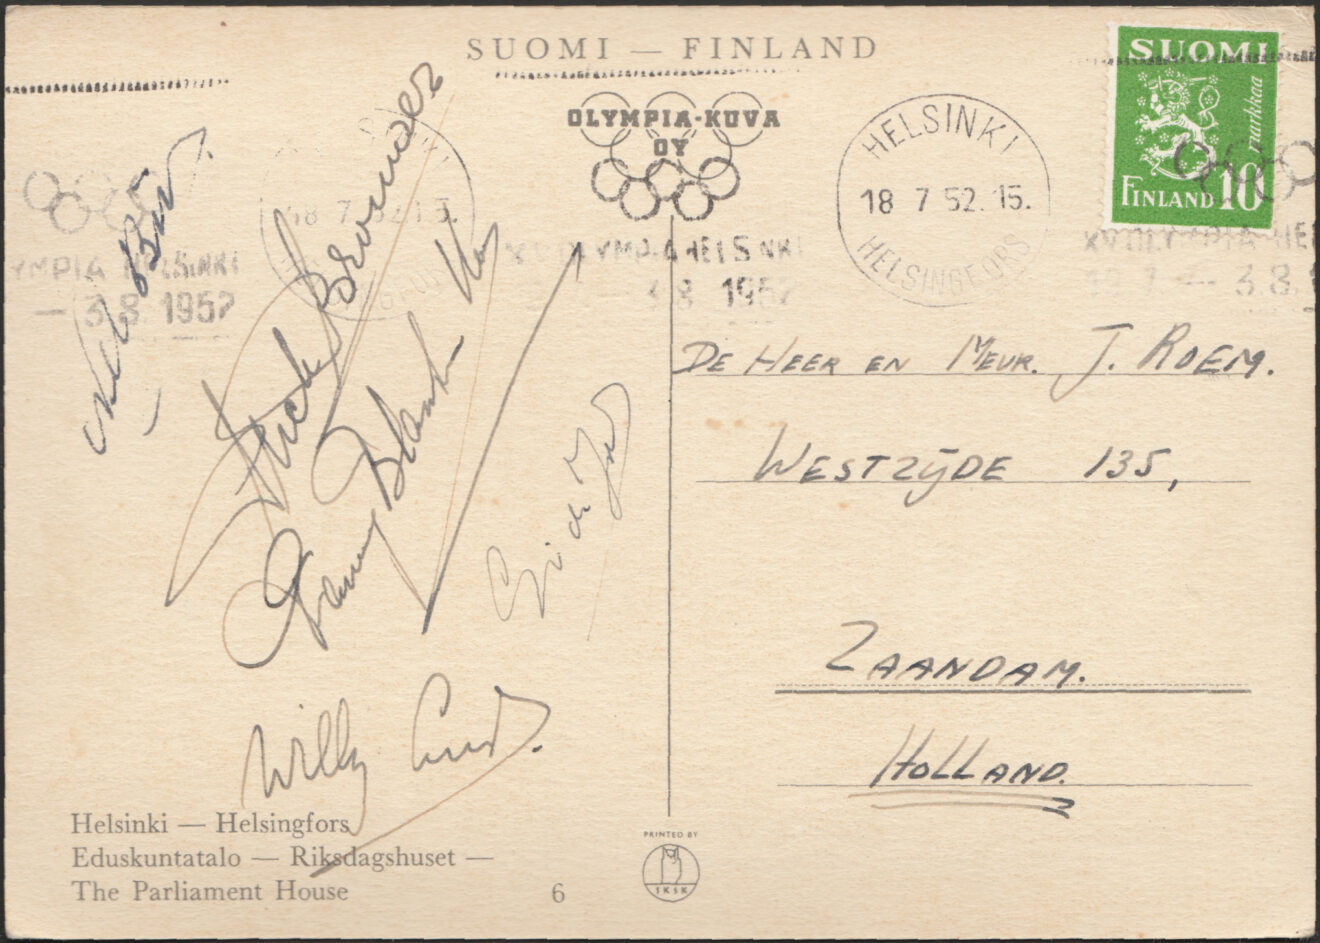 SUOMI — FINLAND
OLYMPIA-KUVA
OY
SUOMI
markkaa
FINLAND 10
HELSINKI
18 7 52. 15.
HELSINGFORS
18 7 52 15.
YMPIA HELSINKI
— 3.8. 1952
XV OLYMPIA HELSINKI
3.8. 1952
XV OLYMPIA HEL
— 3.8.
DE HEER EN MEVR. J. ROEM.
WESTZIJDE 135,
ZAANDAM.
HOLLAND.
Brouwer
Fanny Blankers
Willy
Helsinki — Helsingfors
Eduskuntatalo — Riksdagshuset —
The Parliament House
6
PRINTED BY
SKSK